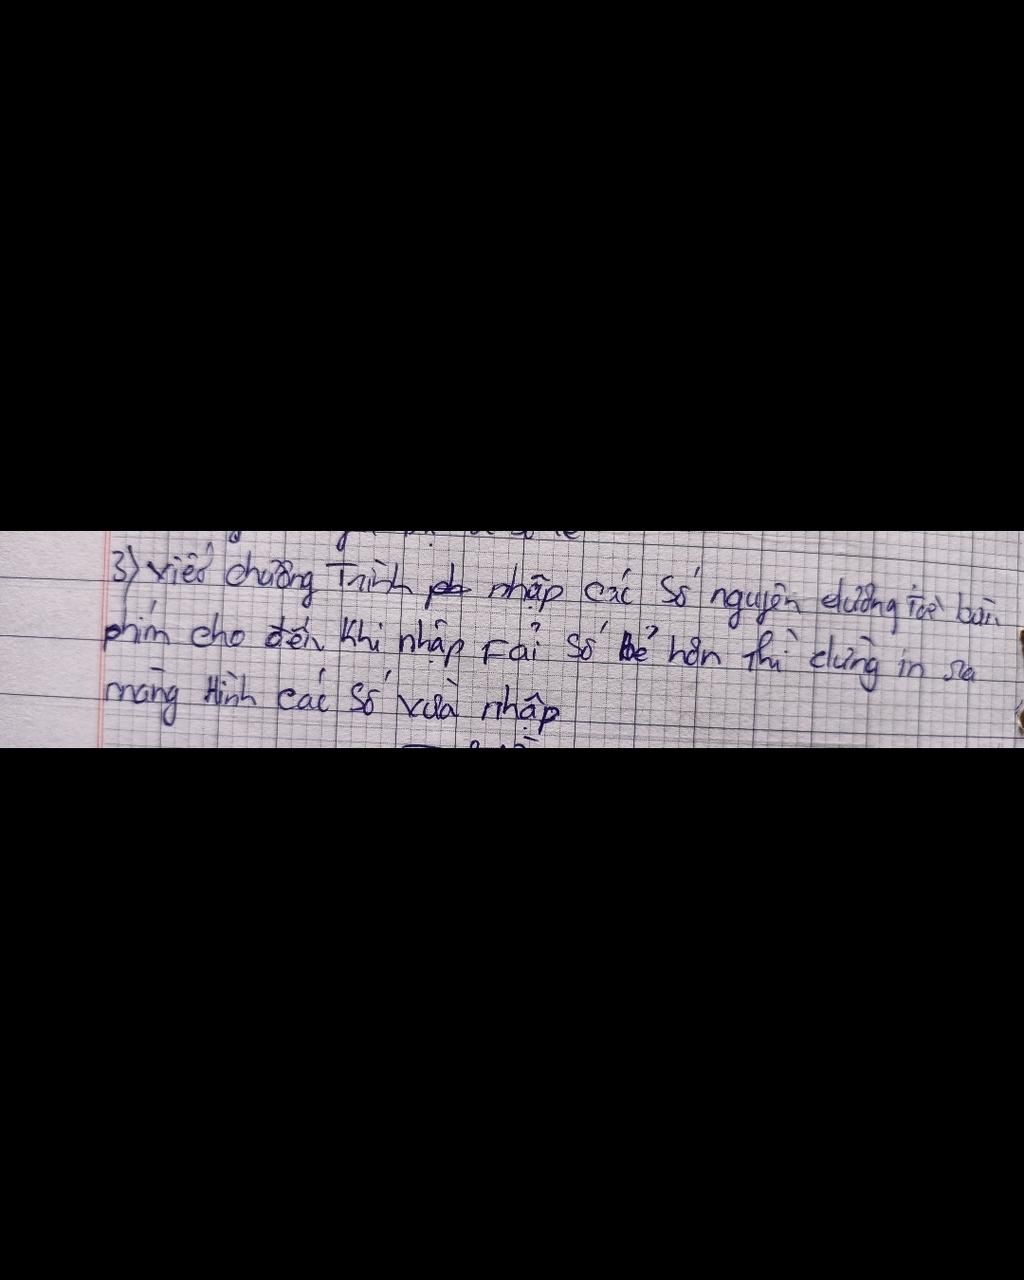 3) viết chương Trình nhập các số nguyên dương từ bàn
phím cho đến khi nhập Fải số bé hơn thì dừng in ra
màng Hình các số vừa nhập